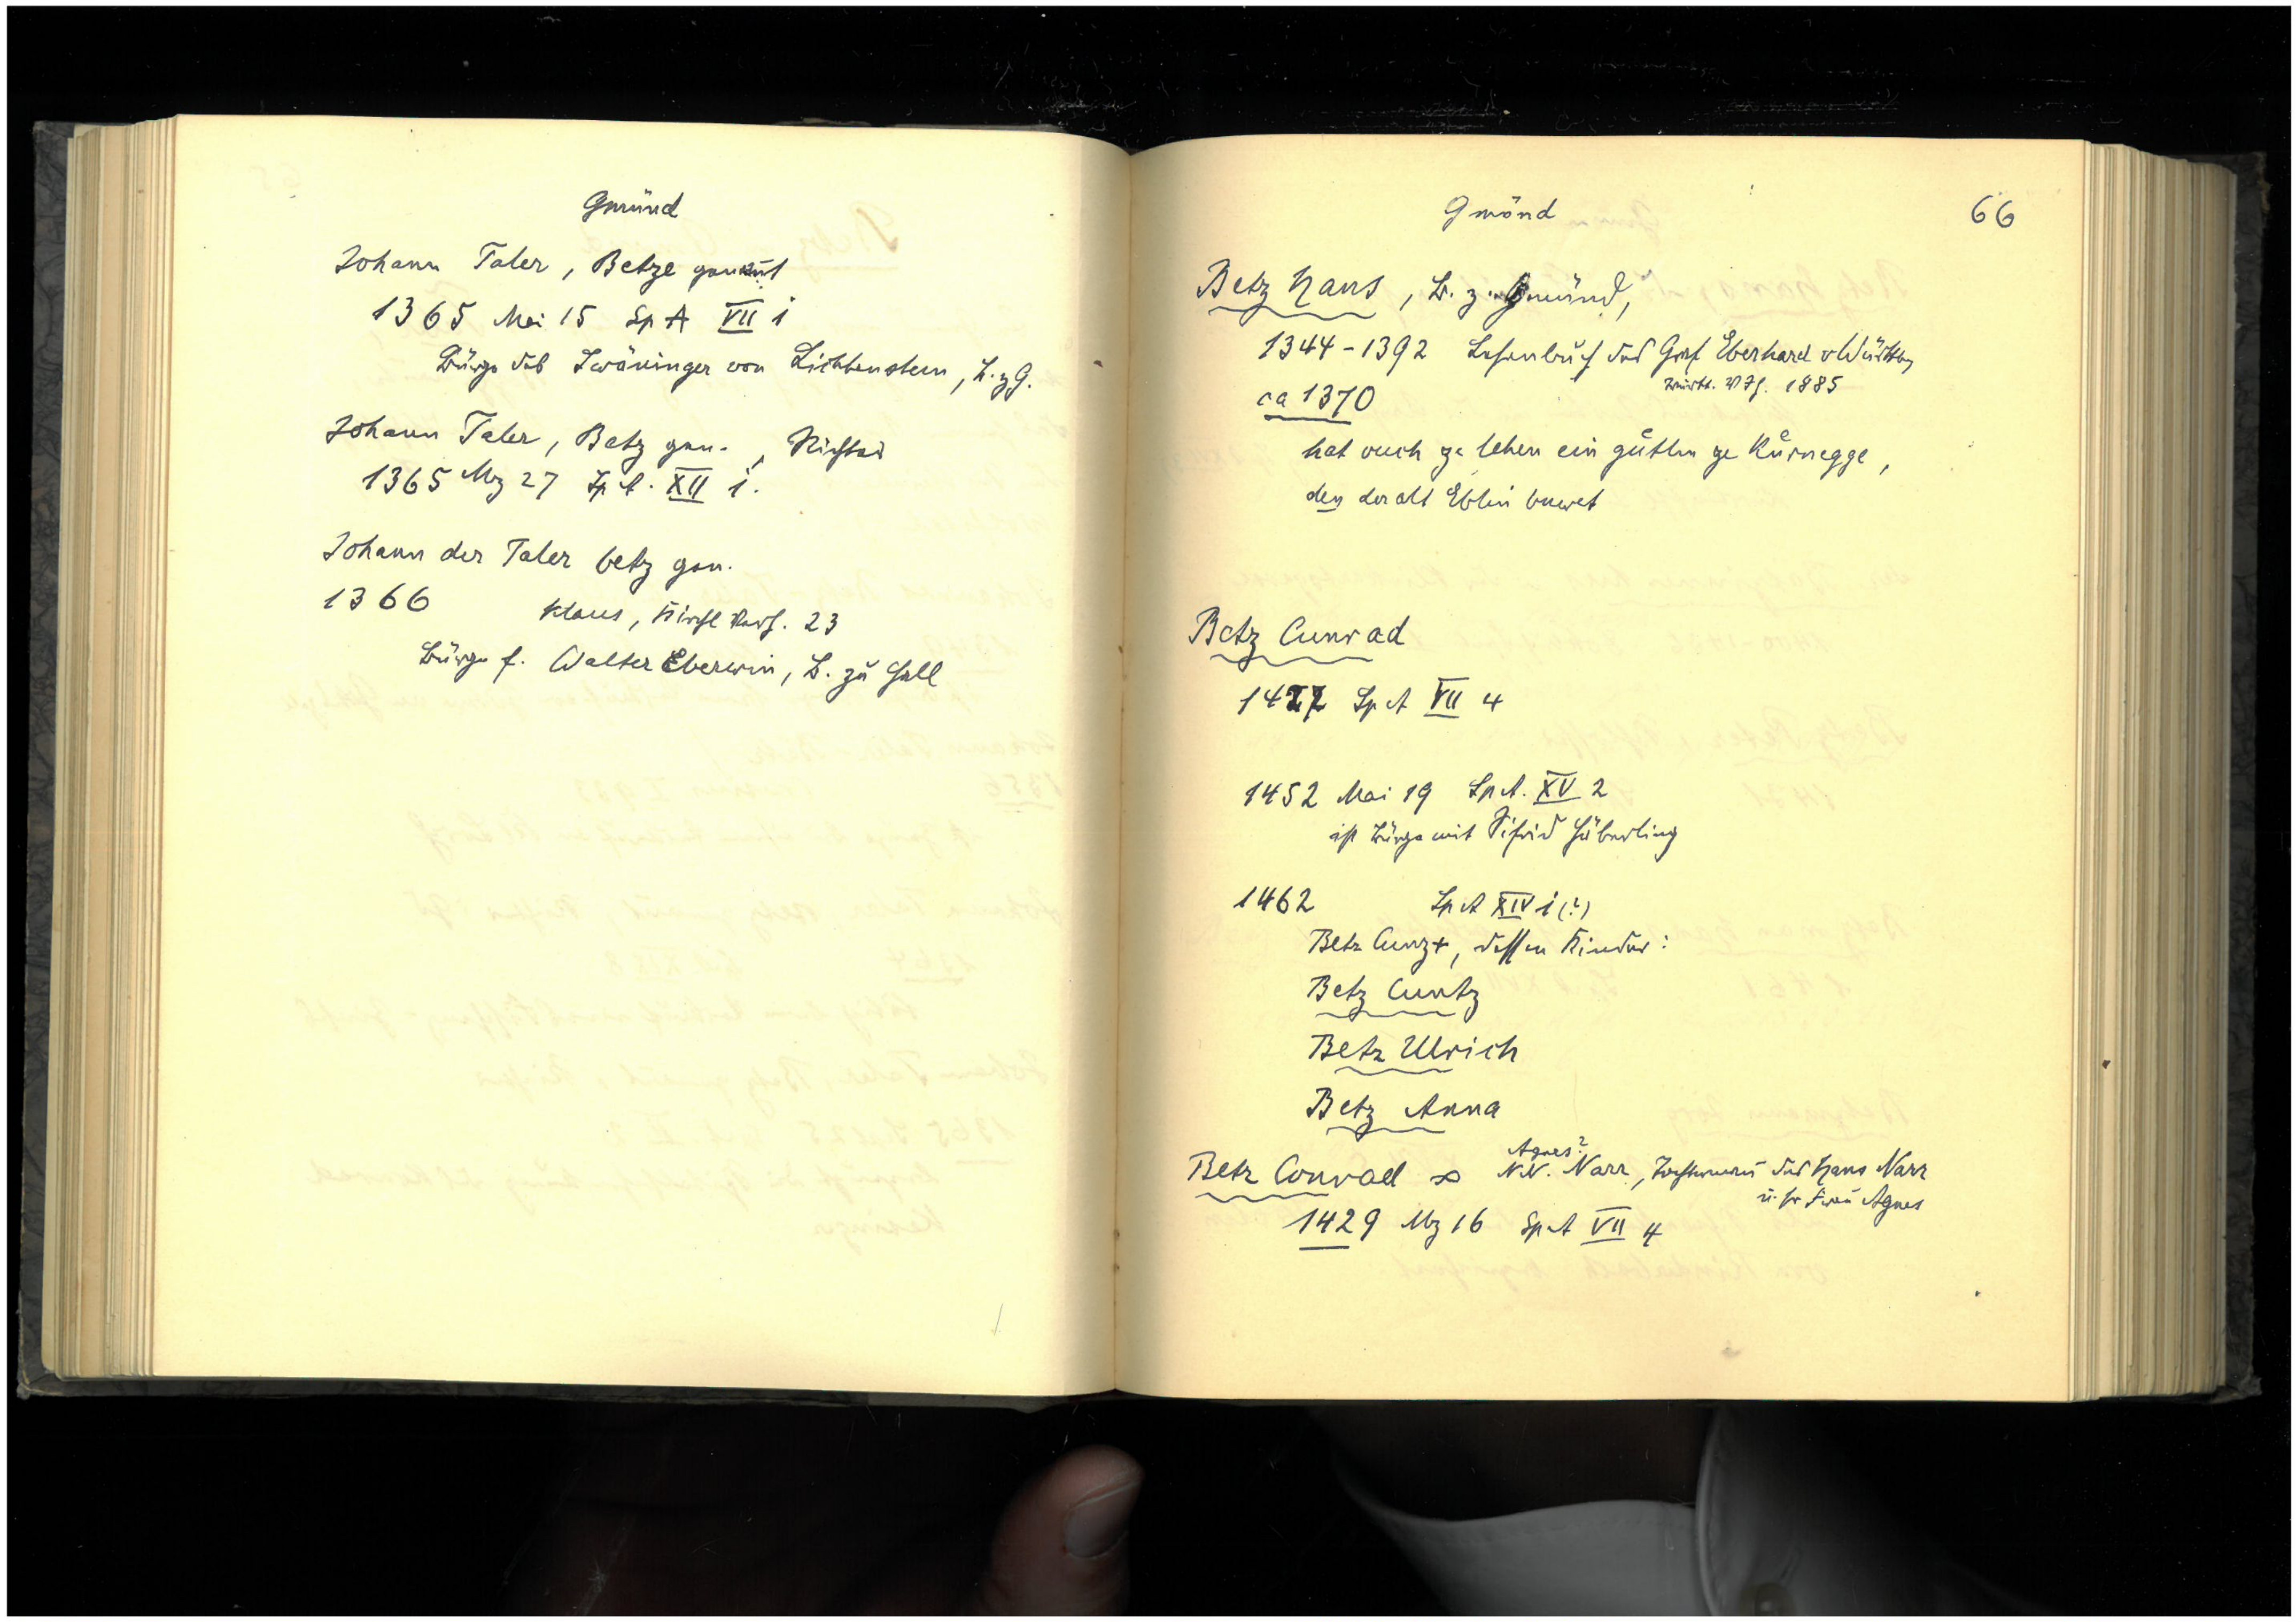 Gmünd
Johann Taler, Betze genannt
1365 Mai 15 Sp A VII 1
Bürge des Zwäninger von Lichtenstein, B. z G.
Johann Taler, Betz gen., Richter
1365 Mz 27 Sp A. XII 1.
Johann der Taler betz gen.
1366 Klaus, Kirchl Verh. 23
Bürge f. Walter Eberwin, B. zu Hall
Gmönd 66
Betz Hans, B. z. Gmünd,
1344-1392 Lehenbuch des Graf Eberhard v Württbg
Württ. VJh. 1885
ca 1370
hat ouch ze lehen ein gůtlin ze Kůrnegge,
den der alt Eblin buwet
Betz Cunrad
1427 Sp A VII 4
1452 Mai 19 Sp A. XV 2
ist Bürge mit Sifrid Häberling
1462 Sp A XIV 1 (?)
Betz Cunz +, dessen Kinder:
Betz Cuntz
Betz Ulrich
Betz Anna
Agnes?
Betz Conrad ∞ N.N. Narr, Tochtermann des Hans Narr
u. sr Frau Agnes
1429 Mz 16 Sp A VII 4